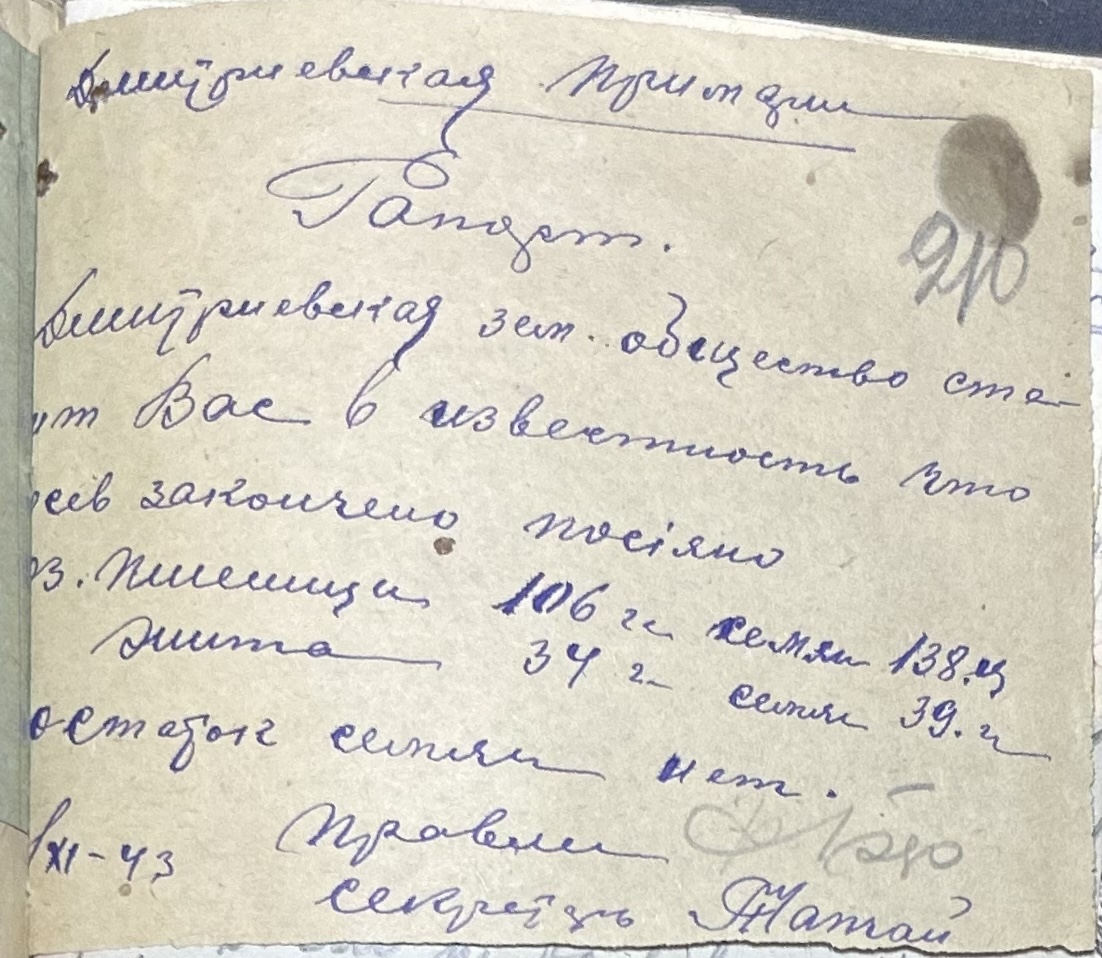 Дмитриевская Примари
Рапорт.
210
Дмитриевская зем. общество ста-
ит Вас в известность что
осев закончено посіяно
оз. Пшеници 106 га семян 138.ц
Жита 34 га семян 39.ц
остаток семян нет.
XI-43 Правлен
секретарь